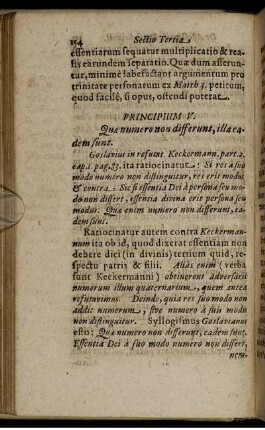 194 Sectio Tertia
essentiarum sequatur multiplicatio & rea-
lis earundem separatio. Quæ dum asserun-
tur, minimè labefactant argumentum pro
trinitate personarum ex Matth 3. petitum,
quod facilè, si opus, ostendi poterat.
PRINCIPIUM V.
Quæ numero non differunt, illa ea-
dem sunt.
Goslavius in refut. Keckermann. part. 2.
cap. 1. pag. 73. ita ratiocinatur: Si res à suo
modo numero non distinguitur, res erit modus
& contra. Sic si essentia Dei à persona seu mo-
do non differt, essentia divina erit persona seu
modus. Quæ enim numero non differunt, ea-
dem sunt.
Ratiocinatur autem contra Keckerman-
num ita ob id, quod dixerat essentiam non
debere dici (in divinis) tertium quid, re-
spectu patris & filii. Aliàs enim (verba
sunt Keckermanni) obtinerent Adversarii
numerum illum quaternarium, quem antea
refutavimus. Deinde, quia res suo modo non
addit numerum, sive numero à suis modo
non distinguitur. Syllogismus Goslavianus
esto: Quæ numero non differunt, eadem sunt.
Essentia Dei à suo modo numero non differt,